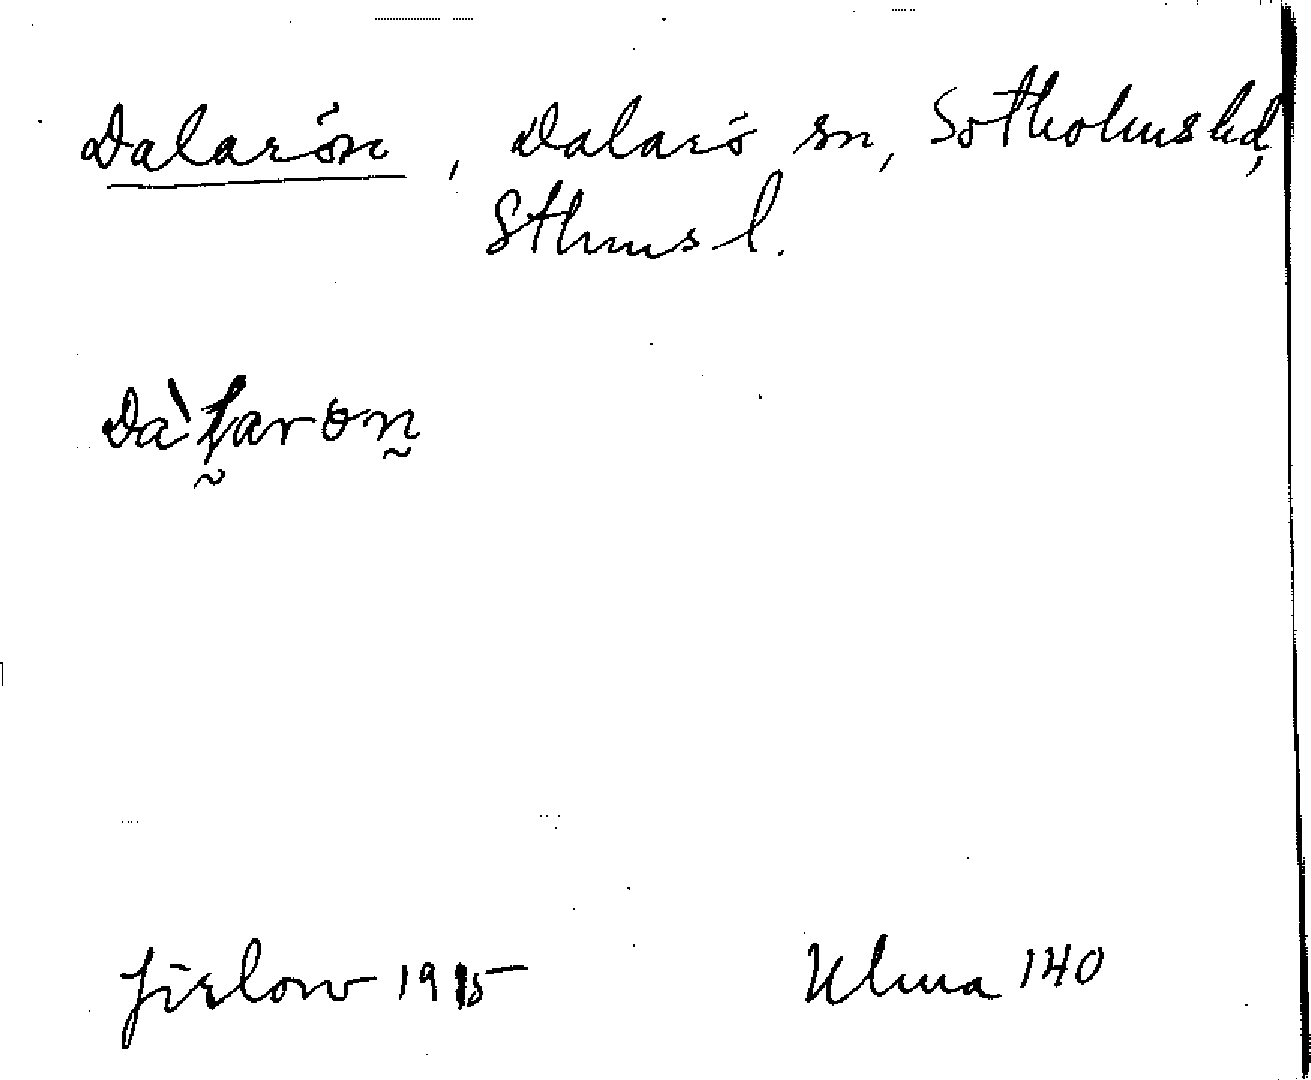 Dalarön, Dalarö sn, Sotholms hd,
Sthms l.
Jirlow 1915 Ulma 140